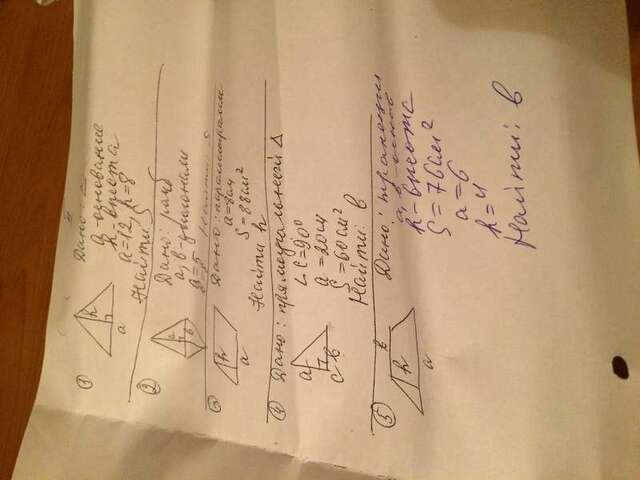 ① Дано: Δ
a-основание
h-высота
a=12, h=8
Найти S
h
a
② Дано: ромб
a, b-диагонали
a=5
Найти:
a
b
③ Дано: параллелограмм
a=8см
S=88см²
Найти h
h
a
④ Дано: прямоугольный Δ
∠C=90°
a=20см
S=60см²
Найти: b
a
c
b
⑤ Дано: трапеция
a, b-основ
h-высота
S=76см²
a=6
h=4
Найти: b
b
h
a